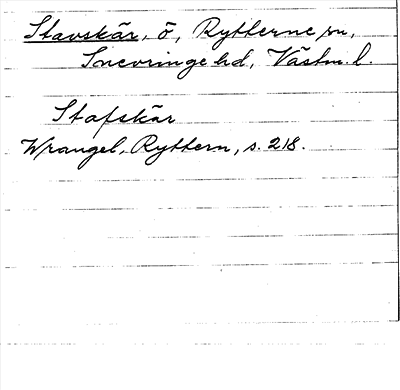 Stavskär, ö, Rytterne sn,
Snevringe hd, Västm. l.
Stafskär
Wrangel, Ryttern, s. 218.